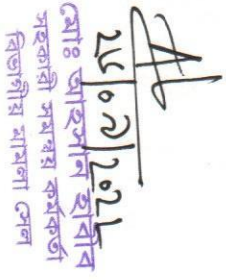 ২৮|০৯|২০২৮
মোঃ আহসান হাবীব
সহকারী সমন্বয় কর্মকর্তা
বিভাগীয় মামলা সেল